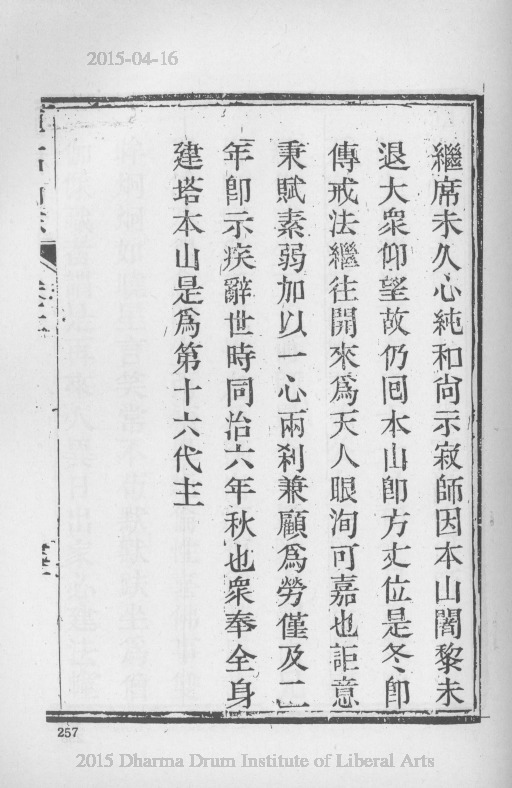 2015-04-16
繼席未久心純和尙示寂師因本山闍黎未
退大衆仰望故仍囘本山卽方丈位是冬卽
傳戒法繼往開來爲天人眼洵可嘉也詎意
秉賦素弱加以一心兩刹兼顧爲勞僅及二
年卽示疾辭世時同治六年秋也衆奉全身
建塔本山是爲第十六代主
257
2015 Dharma Drum Institute of Liberal Arts